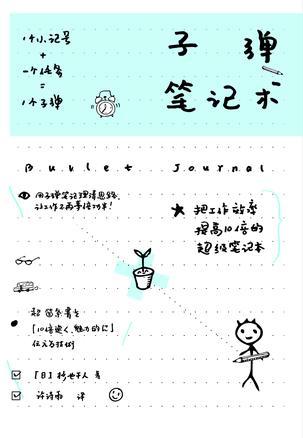 1个小记号
+
一个任务
=
1个子弹
子弹
笔记术
Bullet Journal
用子弹笔记理清思路,
让工作不再事倍功半!
★ 把工作效率
提高10倍的
超级笔记本
超简单易
「10倍速く、魅力的に」
☑ 【日】杉 人 著
☑ 许诗雨 译